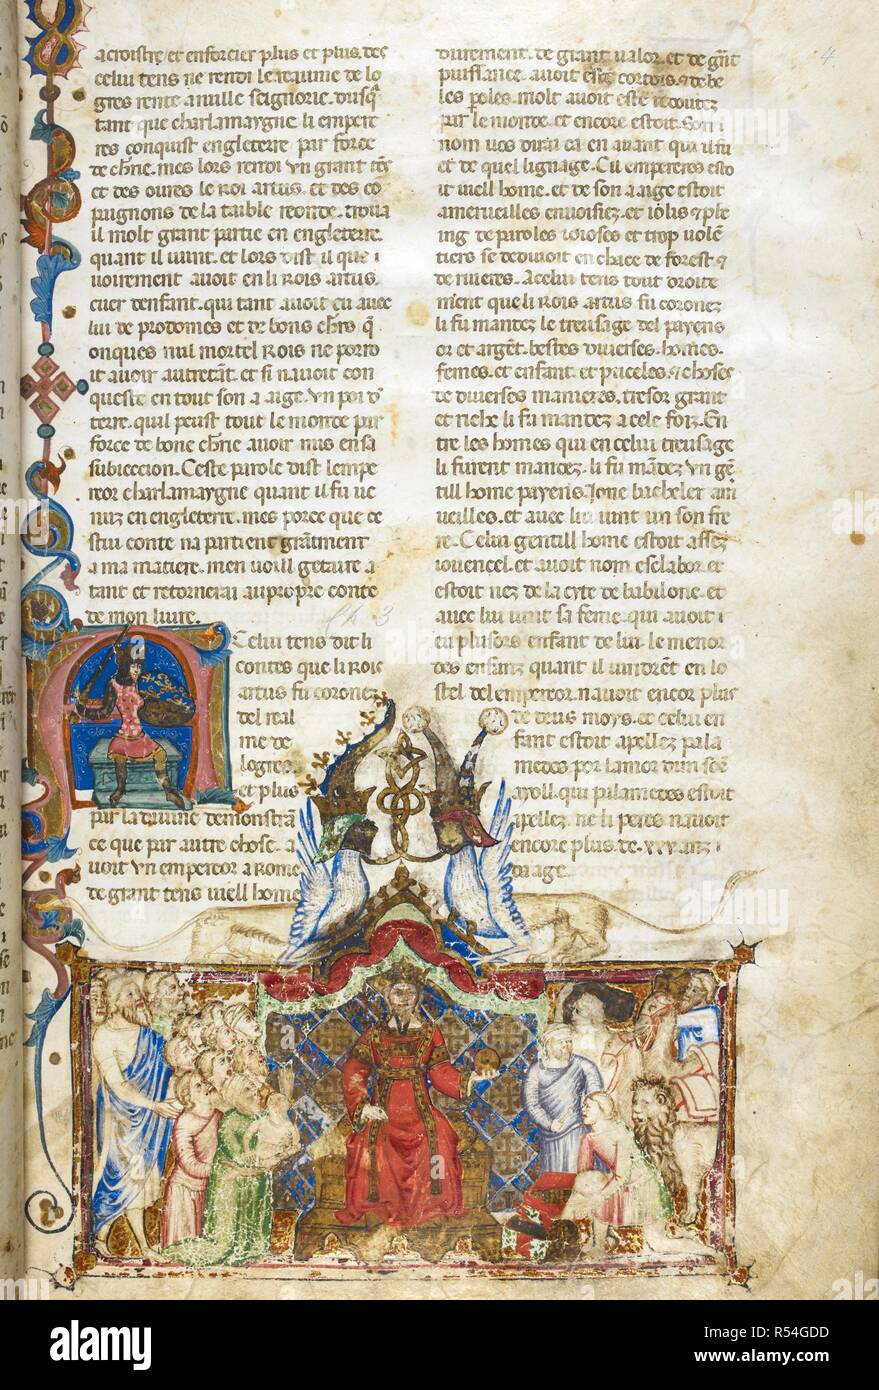 acroistre et enforcier plus et plus. des
celui tens ne rendi le reaume de lo
gres rente a nulle seignorie. dusq
tant que charlamaygne li emper
res conquist engleterre par force
de chrie. mes lors rendi vn grant tens
et des oures le roi artus. et des co
pugnons de la table reonde. troua
il molt grant partie en engleterre.
quant il uint. et lors dist il que
uoirement auoit en li rois artus.
cuer denfant. qui tant auoit eu auec
lui de prodomes et de bons chrs q
onques nul mortel rois ne porro
it auoir autretant. et si nauoit con
queste en tout son aage. vn poi de
terre. quil peust tout le monde par
force de bone chrie auoir mis en sa
subieccion. Ceste parole dist lempe
reor charlamaygne quant il fu ue
nuz en engleterre. mes porce que ce
stui conte na partient grantment
a ma matiere. men uoill geter a
tant et retornerai au propre conte
de mon liure.
Ch. 3
A Celui tens dit li
contes que li rois
artus fu coronez
del real
me de
logres.
et plus
par la diuine demonstra
ce que par autre chose. a
uoit vn empereor a Rome
de grant tens uiell home
4
durement. de grant ualor. et de grant
puissance. auoit este cortois. et de be
les poles. molt auoit este redoutez
par le monde. et encore estoit. Son
nom uos dirai ca en auant qui il fu
et de quel lignage. Cil empereres esto
it uiell home. et de son aage estoit
amerueilles enuoisiez. et iolis. et ple
ing de paroles ioioses et trop uolen
tiers se deduoit en chace de forest et
de riuieres. A celui tens tout droite
ment que li rois artus fu coronez
li fu mandez le treusage del payens
or et argent. bestes diuerses. homes.
femes. et enfant. et puceles. et choses
de diuerses manieres. tresor grant
et riche li fu mandez a cele foiz. En
tre les homes qui en celui treusage
li furent mandez. li fu mandez vn gen
till home payens. Ione bacheler am
ueilles. et auec lui uint un son fre
re. Celui gentill home estoit assez
iouencel. et auoit nom esclabor. et
estoit nez de la cyte de babilone. et
auec lui uint sa feme. qui auoit
eu plusors enfant de lui. le menor
des enfanz quant il uindrent en lo
stel del empereor. nauoit encor plus
de deus moys. et celui en
fant estoit apellez pala
medes por lamor dun
ayoll. qui palamedes estoit
apellez. ne li peres nauoit
encore plus de .xxx. anz
dage.
alamy
Image ID: R54GDD
www.alamy.com